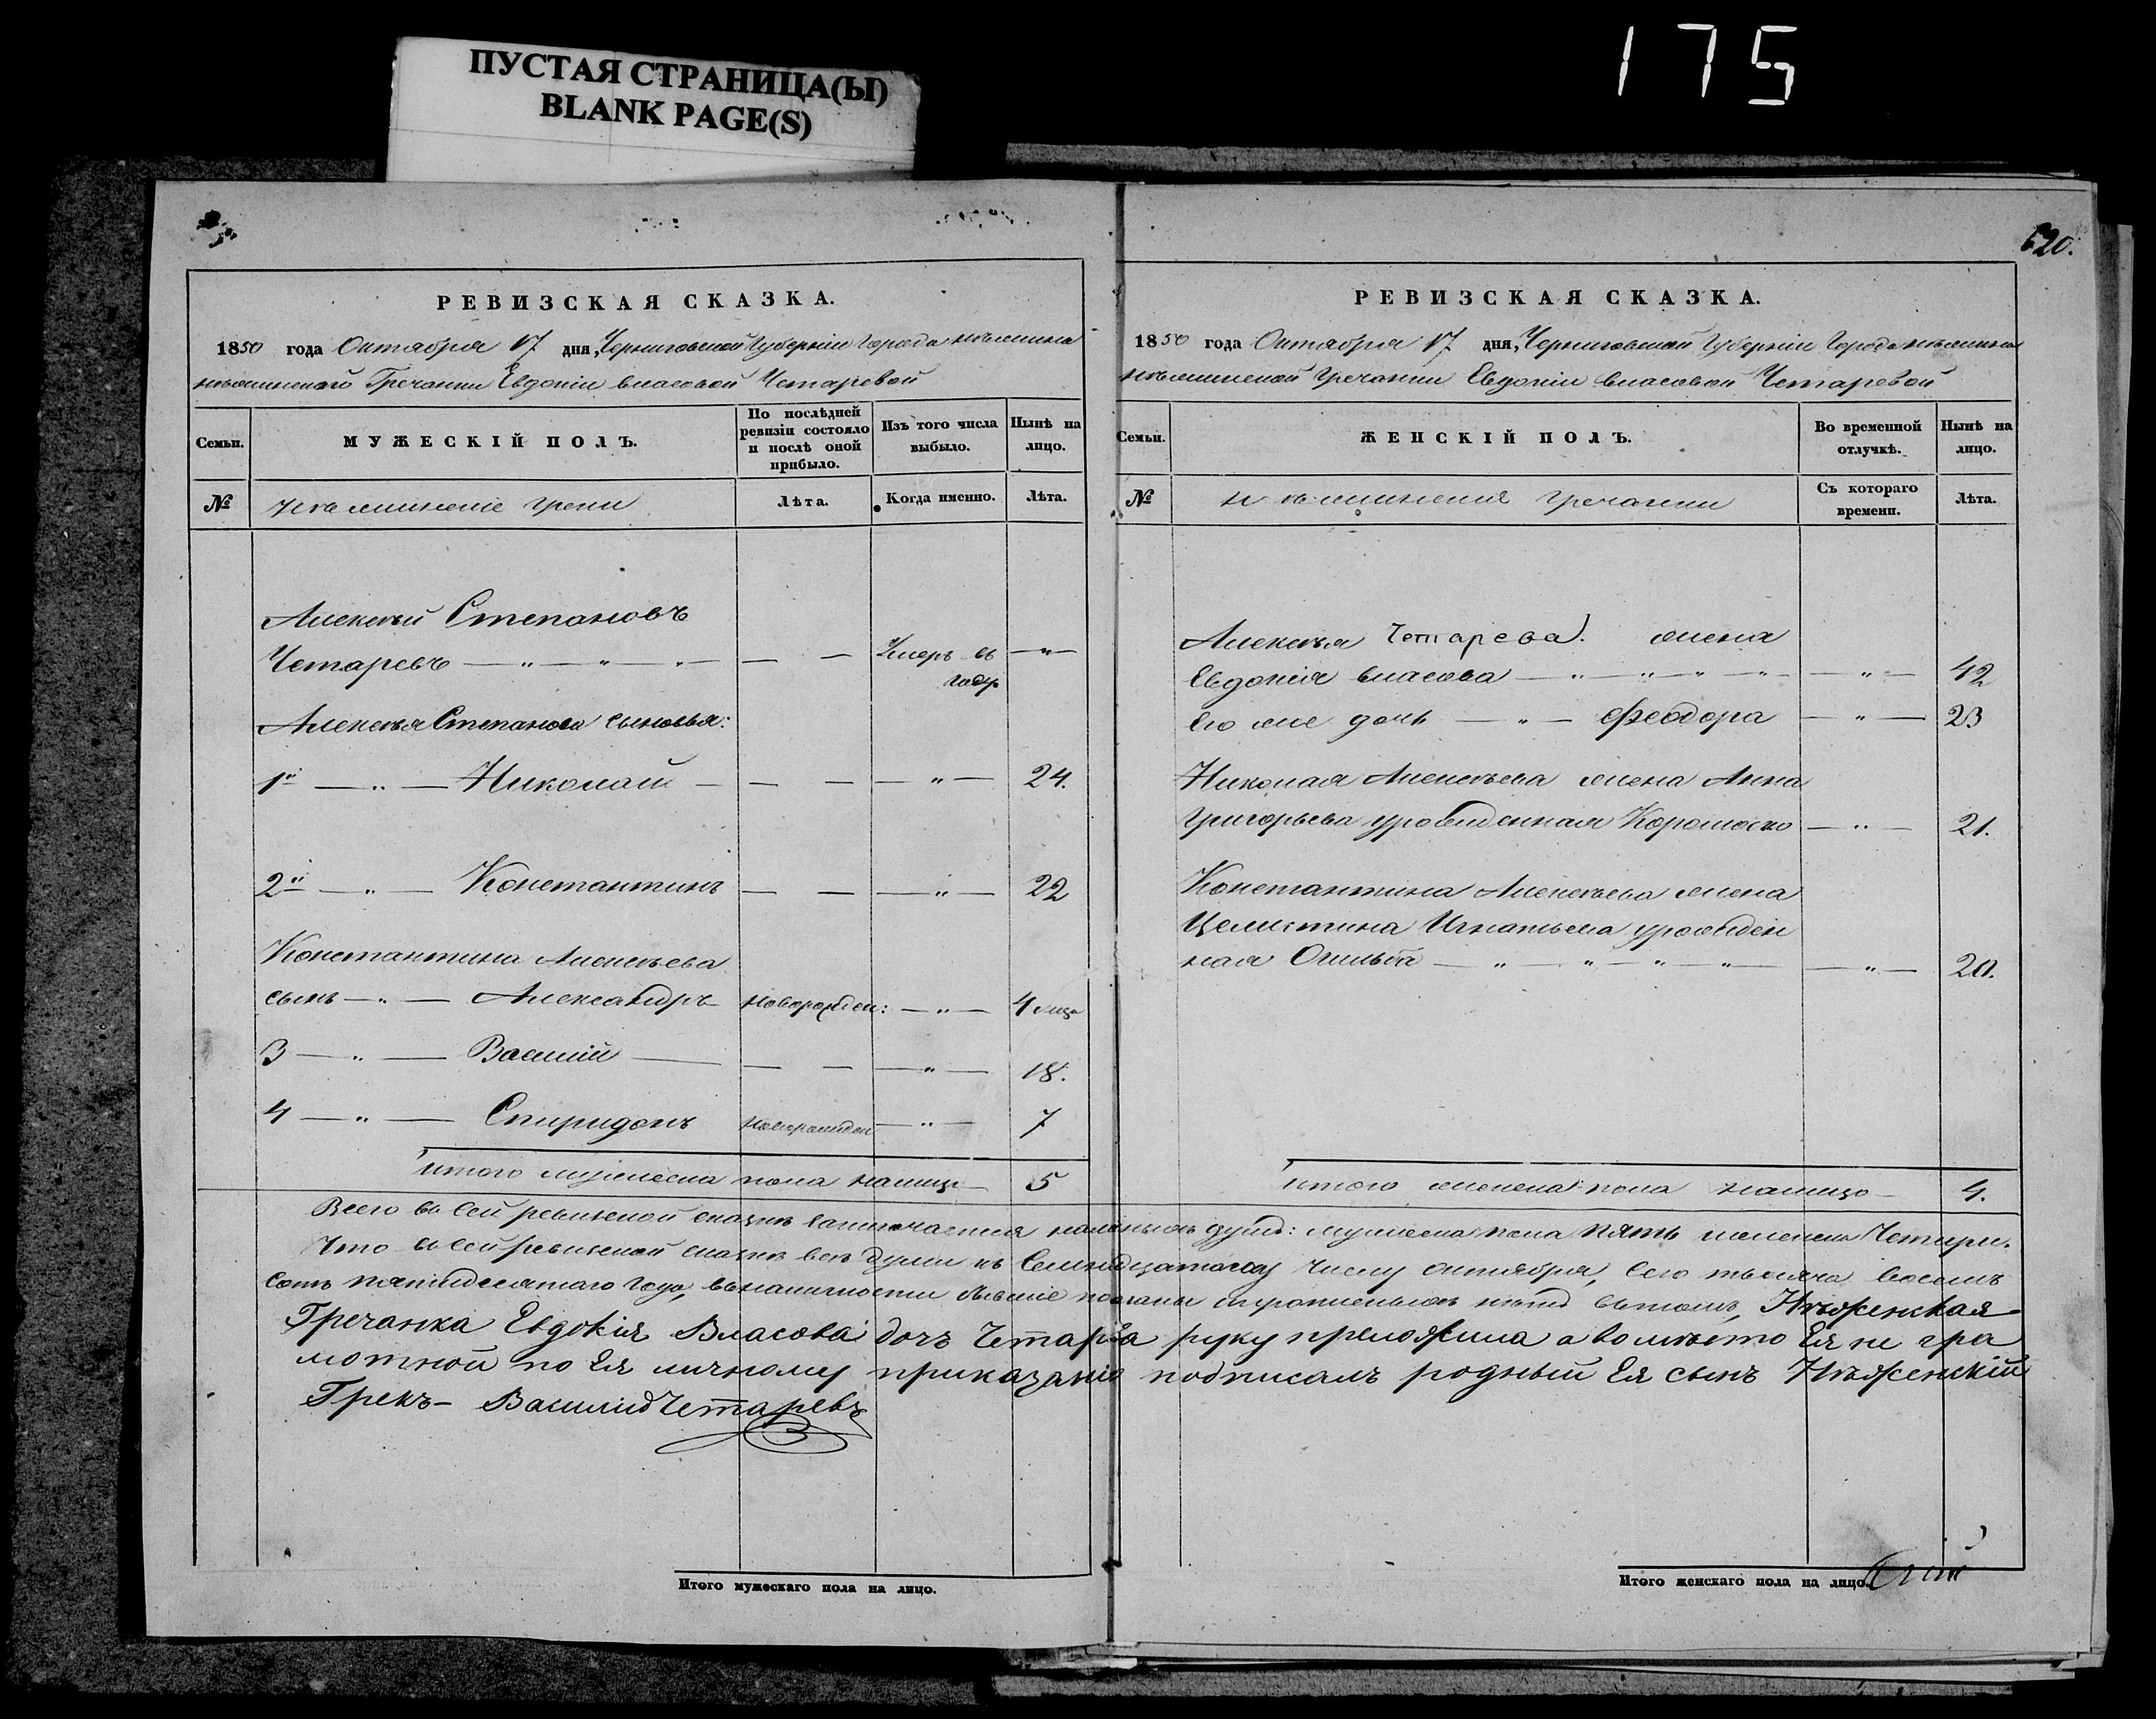 ПУСТАЯ СТРАНИЦА(Ы)
BLANK PAGE(S)
175
620.
РЕВИЗСКАЯ СКАЗКА.
1850 года Октября 17 дня, Черниговской Губерніи Города Нѣжина
нѣжинской Гречанки Евдокіи Власовой Четаревой
Семьи.
МУЖЕСКІЙ ПОЛЪ.
По послѣдней ревизіи состояло и послѣ оной прибыло.
Изъ того числа выбыло.
Нынѣ на лицо.
№
Нѣжинскіе греки
Лѣта.
Когда именно.
Лѣта.
Алексѣй Степановъ
Четаревъ — „ — „ — „ — — — Умеръ въ — „ —
Алексѣя Степанова сыновья:
1й — „ — Николай — — — — „ — 24.
2й — „ — Константинъ — — — „ — 22
Константина Алексѣева
сынъ — „ — Александръ новорожден: — „ — 4 мца
3 — „ — Василій — — — — „ — 18.
4 — „ — Спиридонъ новорожден — „ — 7
Итого мужеска пола налицо 5
РЕВИЗСКАЯ СКАЗКА.
1850 года Октября 17 дня, Черниговской Губерніи Города Нѣжина
нѣжинской Гречанки Евдокіи Власовой Четаревой
Семьи.
ЖЕНСКІЙ ПОЛЪ.
Во временной отлучкѣ.
Нынѣ на лицо.
№
Нѣжинскія гречанки
Съ котораго времени.
Лѣта.
Алексѣя Четарева. жена
Евдокія Власова — „ — „ — „ — „ — — „ — 42
Его же дочь — „ — Феодора — „ — 23
Николая Алексѣева жена Анна
Григорьева урожденная — „ — 21.
Константина Алексѣева жена
Целистина Игнатьева урожден
ная — „ — „ — „ — „ — — „ — 20.
Итого женска пола налицо 4.
Всего въ сей ревизской сказкѣ заключается наличныхъ душъ: мужеска пола пять женска Четыри.
Что въ сей ревизской сказкѣ всѣ души къ Семнадцатому числу октября, сего тысяча восемь
сотъ пятидесятаго года, въ наличности бывшіе показаны и прописныхъ нѣтъ въ томъ, Нѣженская
Гречанка Евдокія Власова дочь Четарѣва руку приложила а вомѣсто Ея не гра
мотной по Ея личному приказанію подписалъ родный Ея сынъ Нѣженскій
Грекъ — Василій Четаревъ
Итого мужескаго пола на лицо.
Итого женскаго пола на лицо.